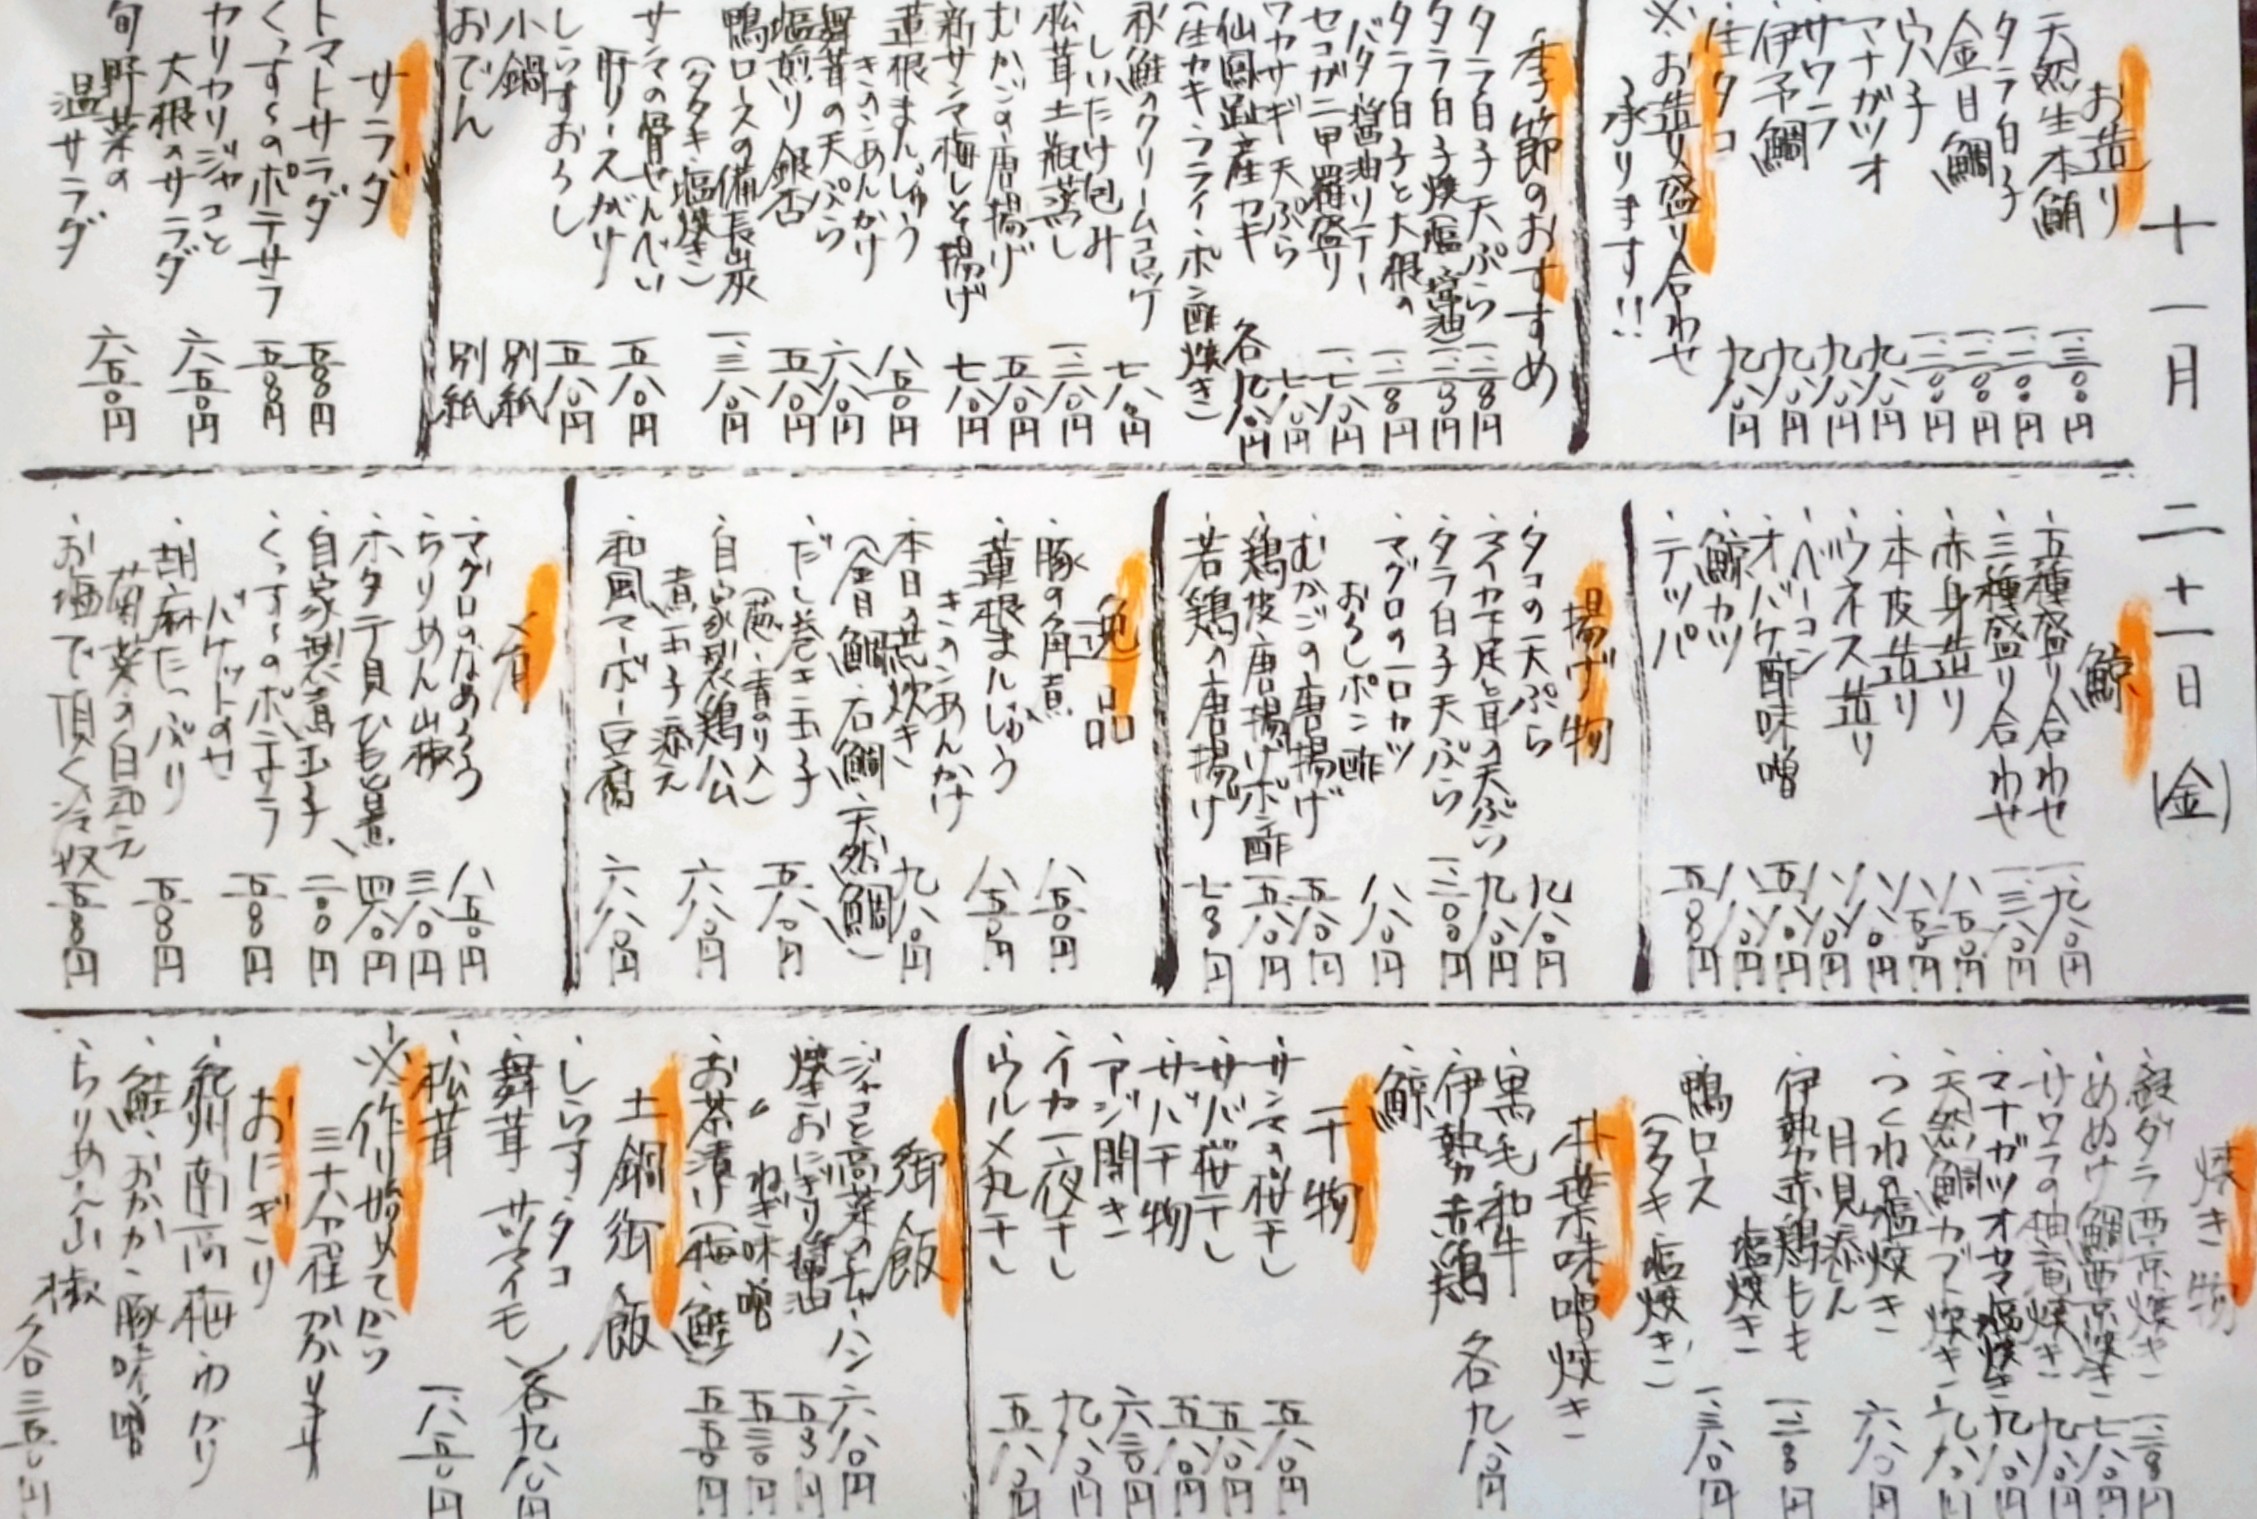 十一月二十一日(金)
お造り
・天然生本鮪 一、三〇〇円
・タラ白子 一、二〇〇円
・金目鯛 一、二〇〇円
・穴子 一、二〇〇円
・マナガツオ 九八〇円
・サワラ 九八〇円
・伊予鯛 九八〇円
・生タコ 九八〇円
※お造り盛り合わせ
承ります!!
季節のおすすめ
・タラ白子天ぷら
・タラ白子焼(塩・醤油)
・タラ白子と大根の
バター醤油ソテー
・セコガニ甲羅盛り 一、七八〇円
・ワカサギ天ぷら 七八〇円
・仙鳳趾産カキ 各九八〇円
(生カキ・フライ・ポン酢・焼き)
・秋鮭のクリームコロッケ 七八〇円
しいたけ包み
・松茸土瓶蒸し 一、三八〇円
・むかごの唐揚げ 五八〇円
・新サンマ梅しそ揚げ 七八〇円
・蓮根まんじゅう 八五〇円
きのこあんかけ
・舞茸の天ぷら 六八〇円
・塩煎り銀杏 五八〇円
・鴨ロースの備長炭 一、三八〇円
(タタキ・塩焼き)
・サンマの骨せんべい 五八〇円
肝ソースがけ
・しらすおろし 五八〇円
・小鍋 別紙
・おでん 別紙
サラダ
・トマトサラダ 五八〇円
・くっす〜のポテサラ 五八〇円
・カリカリジャコと
大根のサラダ 六五〇円
・旬野菜の
温サラダ 六五〇円
鯨
・五種盛り合わせ 一、九八〇円
・三種盛り合わせ 一、三八〇円
・赤身造り 八五〇円
・本皮造り
・ウネス造り
・ベーコン
・オバケ酢味噌
・鯨カツ
・テッパ 五八〇円
揚げ物
・タコの天ぷら 九八〇円
・マイカ下足と茸の天ぷら 九八〇円
・タラ白子天ぷら
・マグロの一口カツ 八八〇円
おろしポン酢
・むかごの唐揚げ 五八〇円
・鶏皮唐揚げポン酢 五八〇円
・若鶏の唐揚げ 七八〇円
逸品
・豚の角煮 八五〇円
・蓮根まんじゅう 八五〇円
きのこあんかけ
・本日の荒炊き 九八〇円
(金目鯛・石鯛・天然鯛)
・だし巻き玉子 五八〇円
(葱・青のり入)
・自家製鶏ハム 六八〇円
煮玉子添え
・和風マーボー豆腐 六八〇円
〆肴
・マグロのなめろう 八五〇円
・ちりめん山椒 三八〇円
・ホタテ貝ひも旨煮 四八〇円
・自家製煮玉子 二〇〇円
・くっす〜のポテサラ 五八〇円
バケットのせ
・胡麻たっぷり
菊菜の白和え 五八〇円
・お塩で頂く冷奴 五八〇円
焼き物
・銀ダラ西京焼き
・めぬけ鯛西京焼き
・サワラの柚庵焼き 九八〇円
・マナガツオカマ塩焼き 九八〇円
・天然鯛カブト焼き 九八〇円
・つくねの塩焼き 六八〇円
月見添え
・伊勢赤鶏もも
塩焼き
・鴨ロース 一、三八〇円
(タタキ・塩焼き)
朴葉味噌焼き
・黒毛和牛
・伊勢赤鶏 各九八〇円
・鯨
干物
・サンマの桜干し 五八〇円
・サバ桜干し 五八〇円
・サバ干物 五八〇円
・アジ開き 六三〇円
・イカ一夜干し 九八〇円
・ウルメ丸干し 五八〇円
御飯
・ジャコと高菜のチャーハン 六八〇円
・焼きおにぎり醤油
・〃 ねぎ味噌 五三〇円
・お茶漬け(梅・鮭) 五五〇円
土鍋御飯
・しらす・タコ
・舞茸・サツマイモ 各九八〇円
・松茸 一、八五〇円
※作り始めてから
三十分程かかります
おにぎり
・紀州南高梅・ゆかり
・鮭・おかか・豚味噌
・ちりめん山椒 各三五〇円